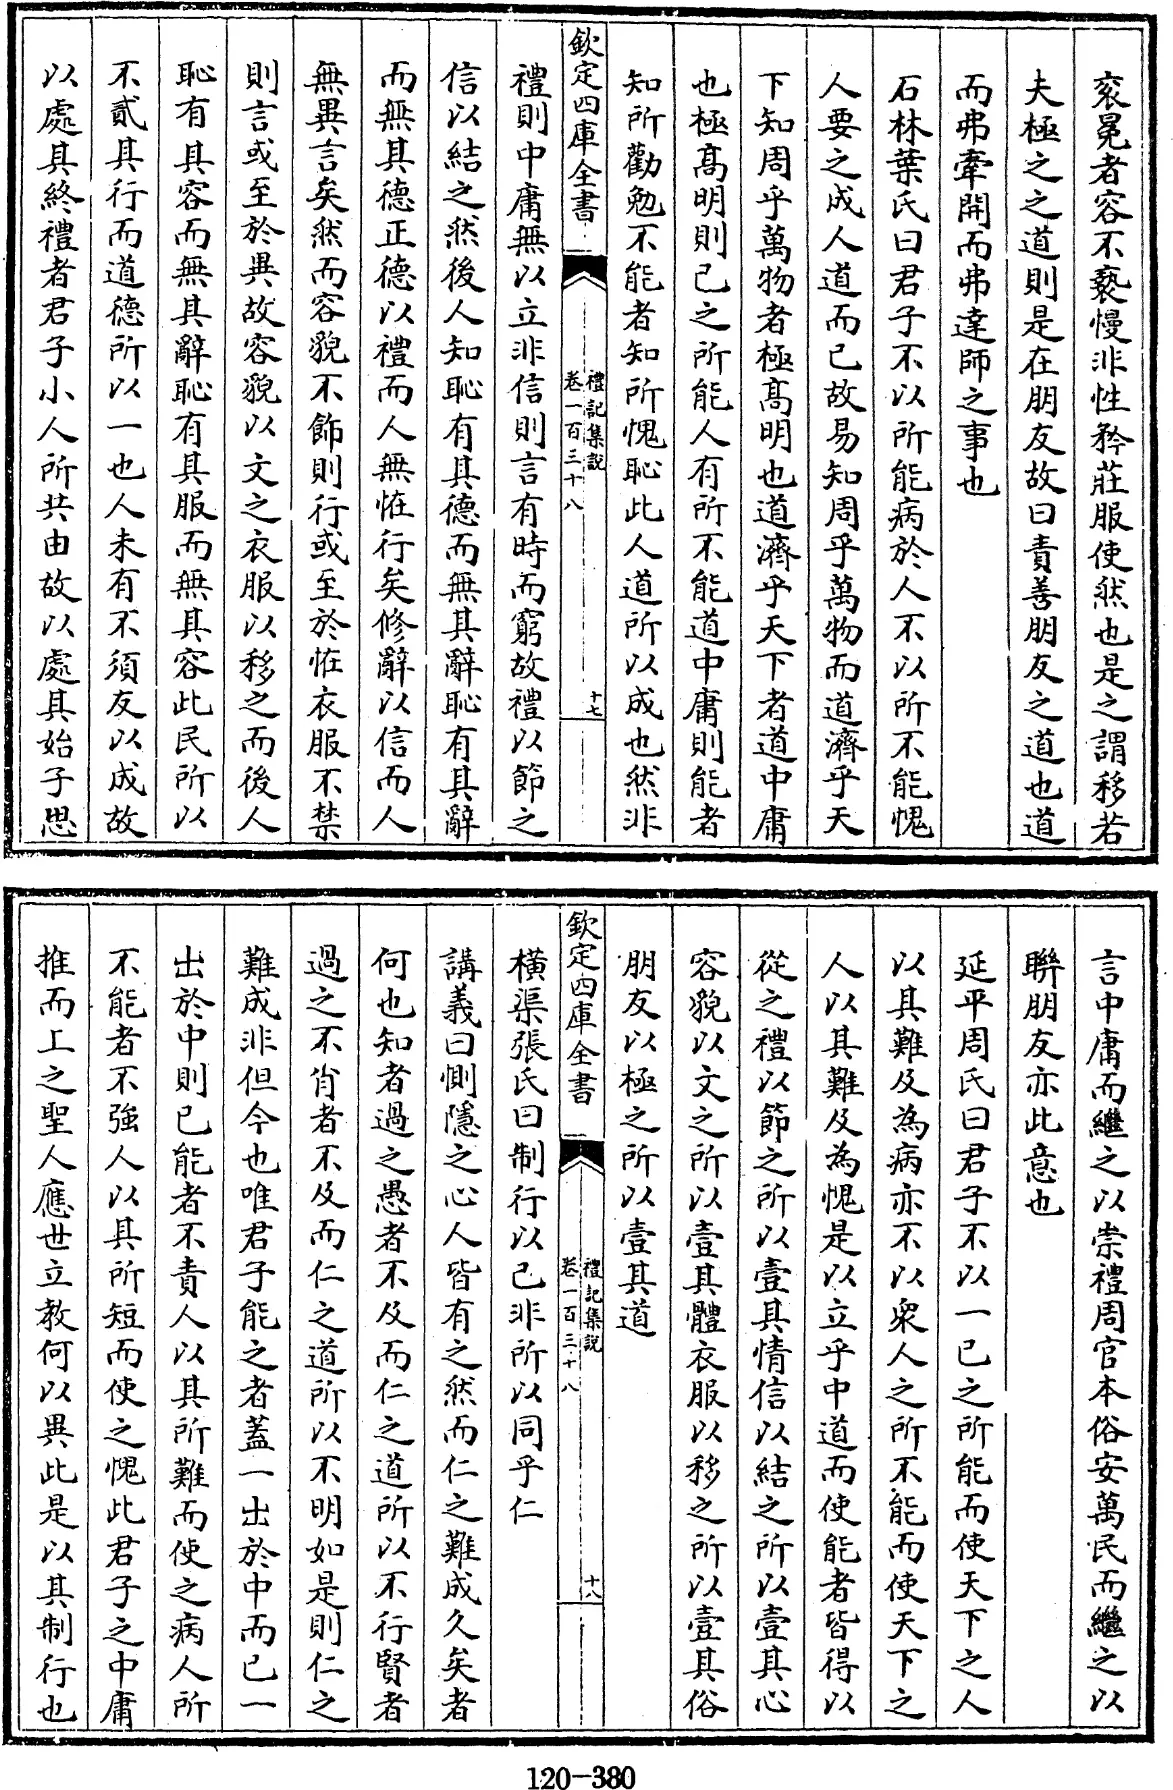 衮冕者容不褻慢非性矜莊服使然也是之謂移若
夫極之之道則是在朋友故曰責善朋友之道也道
而弗牽開而弗達師之事也
石林葉氏曰君子不以所能病於人不以所不能愧
人要之成人道而已故易知周乎萬物而道濟乎天
下知周乎萬物者極高明也道濟乎天下者道中庸
也極高明則已之所能人有所不能道中庸則能者
知所勸勉不能者知所愧恥此人道所以成也然非
欽定四庫全書
禮記集說
卷一百三十八
十七
禮則中庸無以立非信則言有時而窮故禮以節之
信以結之然後人知恥有其德而無其辭恥有其辭
而無其德正德以禮而人無恠行矣修辭以信而人
無異言矣然而容貌不飾則行或至於恠衣服不禁
則言或至於異故容貌以文之衣服以移之而後人
恥有其容而無其辭恥有其服而無其容此民所以
不貳其行而道德所以一也人未有不須友以成故
以處其終禮者君子小人所共由故以處其始子思
言中庸而繼之以崇禮周官本俗安萬民而繼之以
聯朋友亦此意也
延平周氏曰君子不以一己之所能而使天下之人
以其難及為病亦不以衆人之所不能而使天下之
人以其難及為愧是以立乎中道而使能者皆得以
從之禮以節之所以壹其情信以結之所以壹其心
容貌以文之所以壹其體衣服以移之所以壹其俗
朋友以極之所以壹其道
欽定四庫全書
禮記集說
卷一百三十八
十八
橫渠張氏曰制行以己非所以同乎仁
講義曰惻隱之心人皆有之然而仁之難成久矣者
何也知者過之愚者不及而仁之道所以不行賢者
過之不肖者不及而仁之道所以不明如是則仁之
難成非但今也唯君子能之者蓋一出於中而已一
出於中則已能者不責人以其所難而使之病人所
不能者不強人以其所短而使之愧此君子之中庸
推而上之聖人應世立教何以異此是以其制行也
120-380